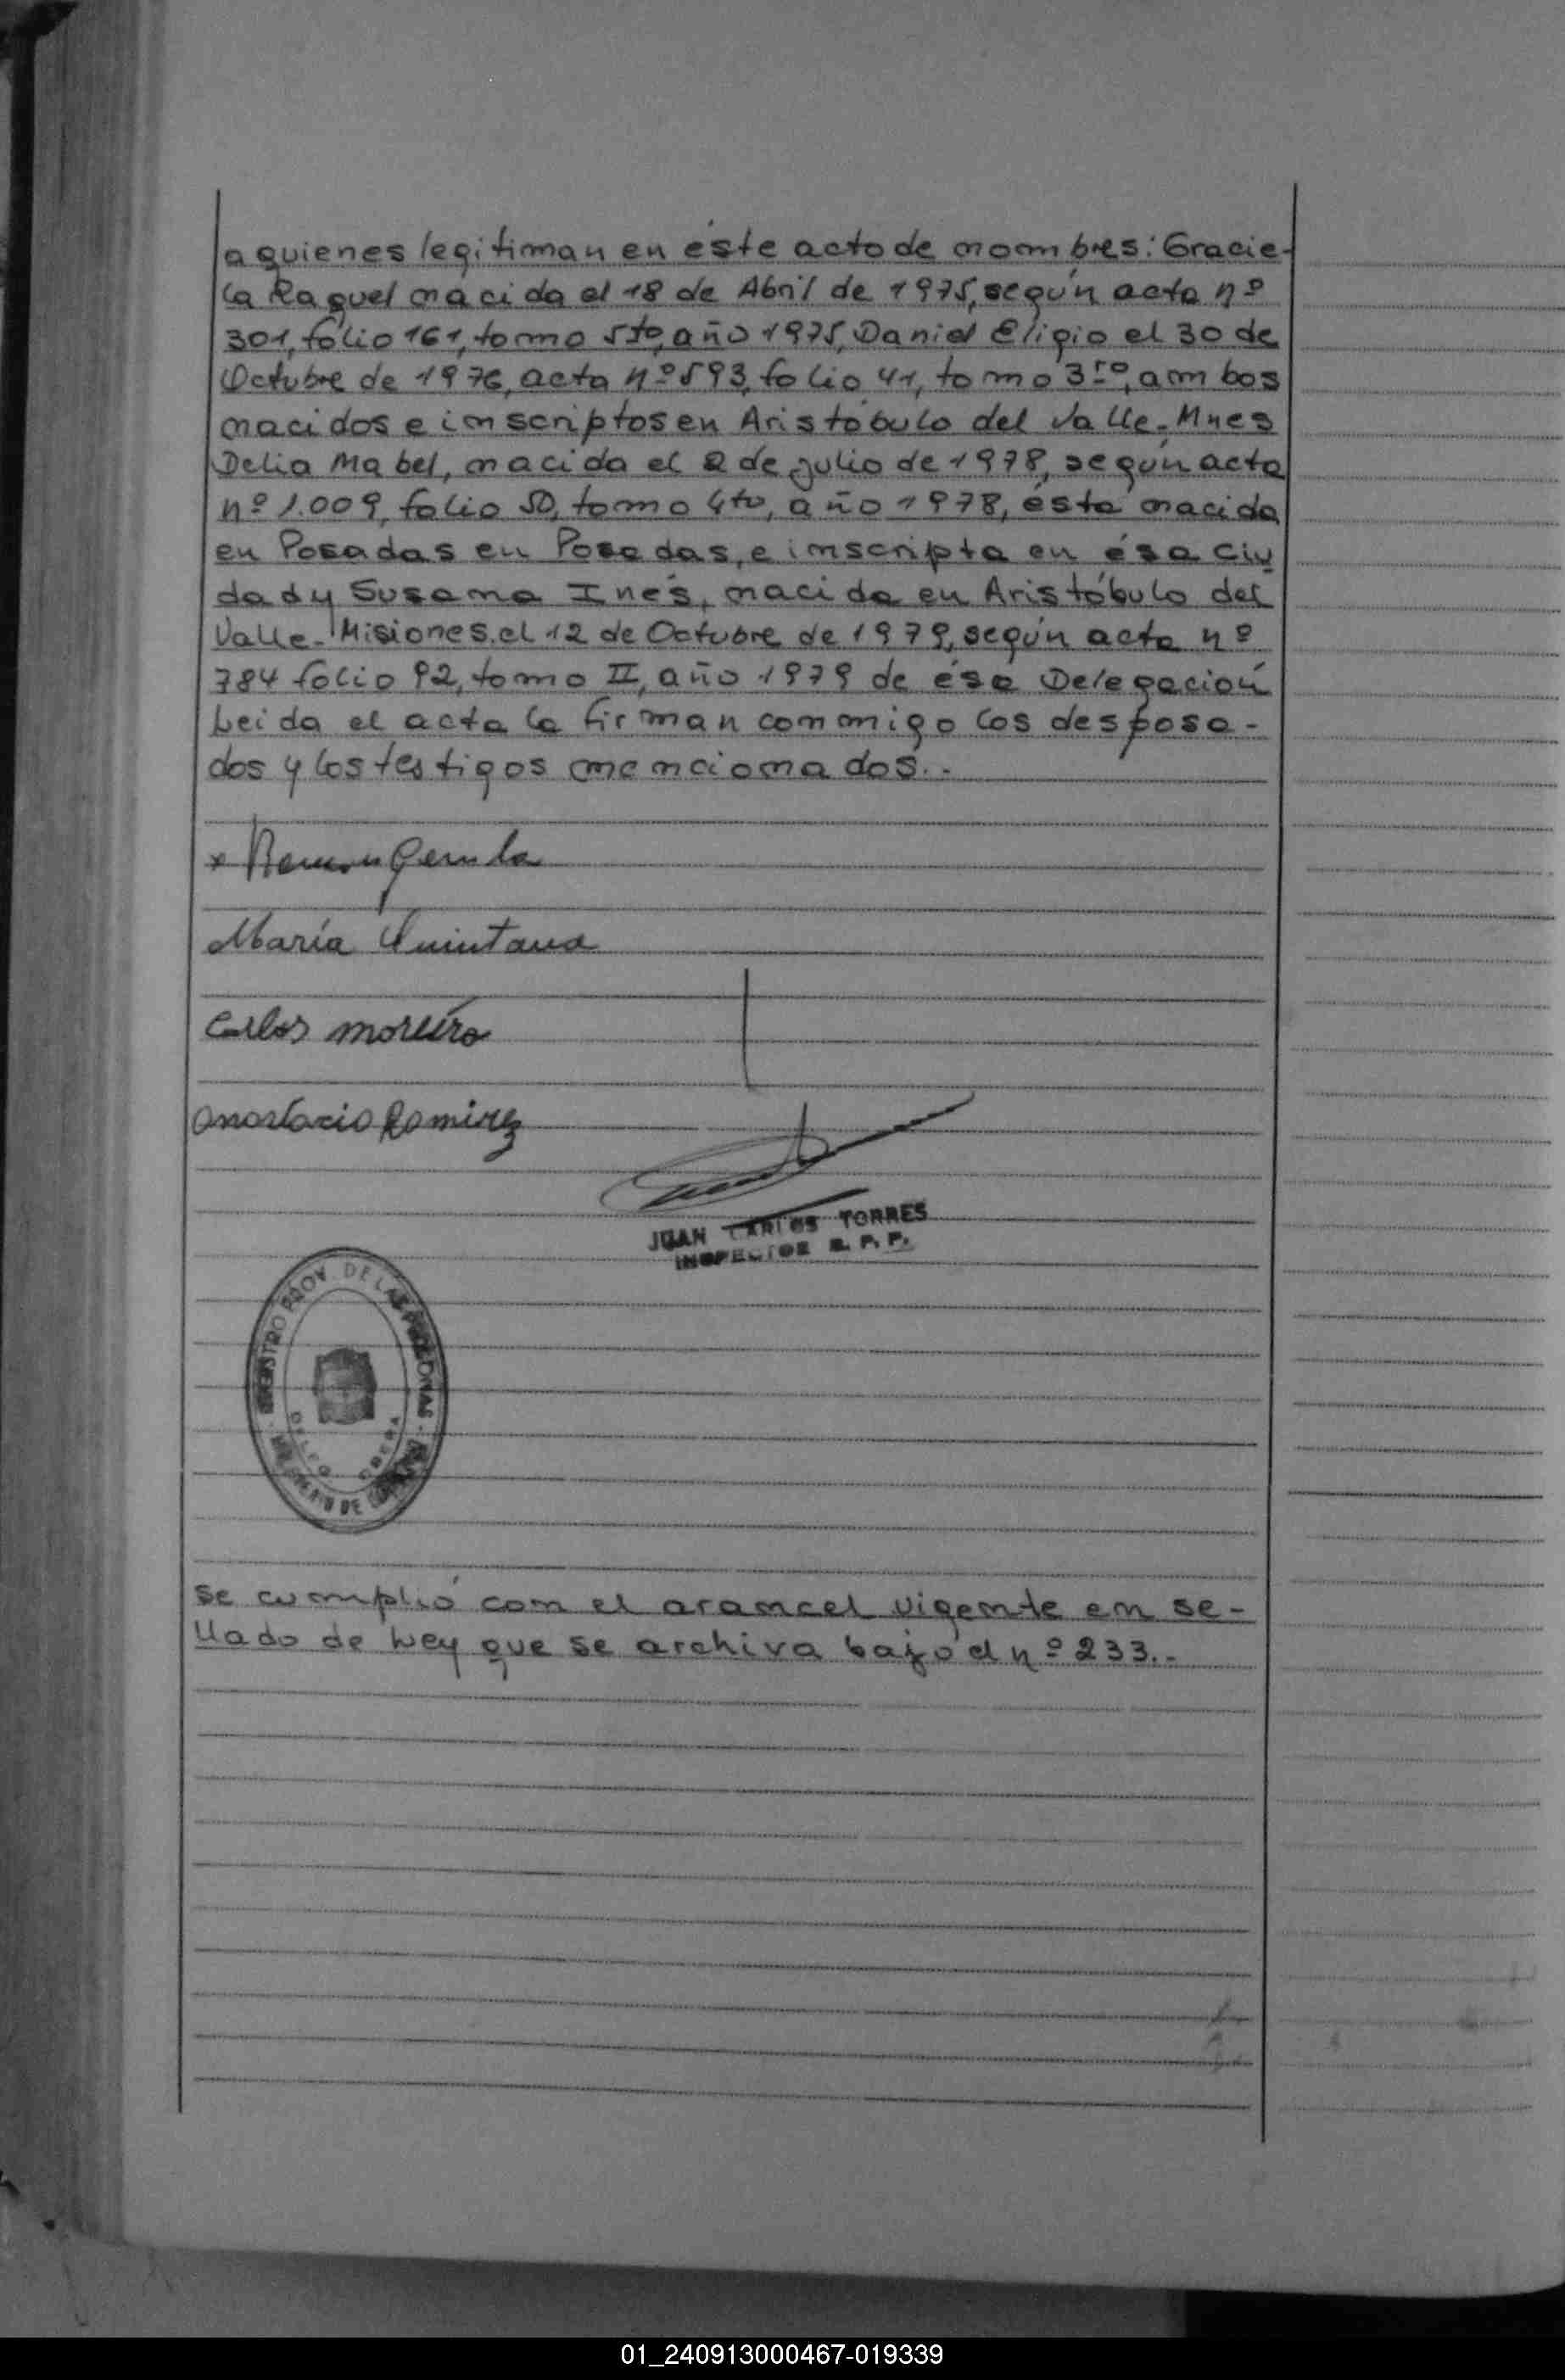 a quienes legitiman en éste acto de nombres: Gracie-
la Raquel nacida el 18 de Abril de 1975, según acta nº
301, folio 161, tomo 5to, año 1975, Daniel Eligio el 30 de
Octubre de 1976, acta nº 593, folio 41, tomo 3ro, ambos
nacidos e inscriptos en Aristóbulo del Valle-Mnes
Delia Mabel, nacida el 2 de julio de 1978, según acta
nº 1.009, folio 50, tomo 4to, año 1978, ésta nacida
en Posadas en Posadas, e inscripta en ésa ciu
dad y Susana Inés, nacida en Aristóbulo del
Valle-Misiones, el 12 de Octubre de 1979, según acta nº
784 folio 92, tomo II, año 1979 de ésa Delegación
Leida el acta la firman conmigo los desposa-
dos y los testigos mencionados..-
x Ramon
María Quintana
Carlos moreira
anastacio Ramirez
JUAN CARLOS TORRES
INSPECTOR R. P. P.
REGISTRO PROV. DE LAS PERSONAS
DELEG. OBERA
MINISTERIO DE
Se cumplió con el arancel vigente en se-
llado de Ley que se archiva bajo el nº 233..-
01_240913000467-019339